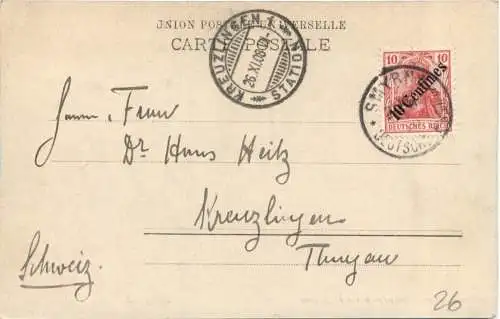 UNION POSTALE UNIVERSELLE
CARTE POSTALE
KREUZLINGEN
26.XI.08
STATION
10 10
10 Centimes
DEUTSCHES REICH
SMYRNA
DEUTSCHE
Herrn u. Frau
Dr Hans Heitz
Kreuzlingen
Thurgau
Schweiz.
26